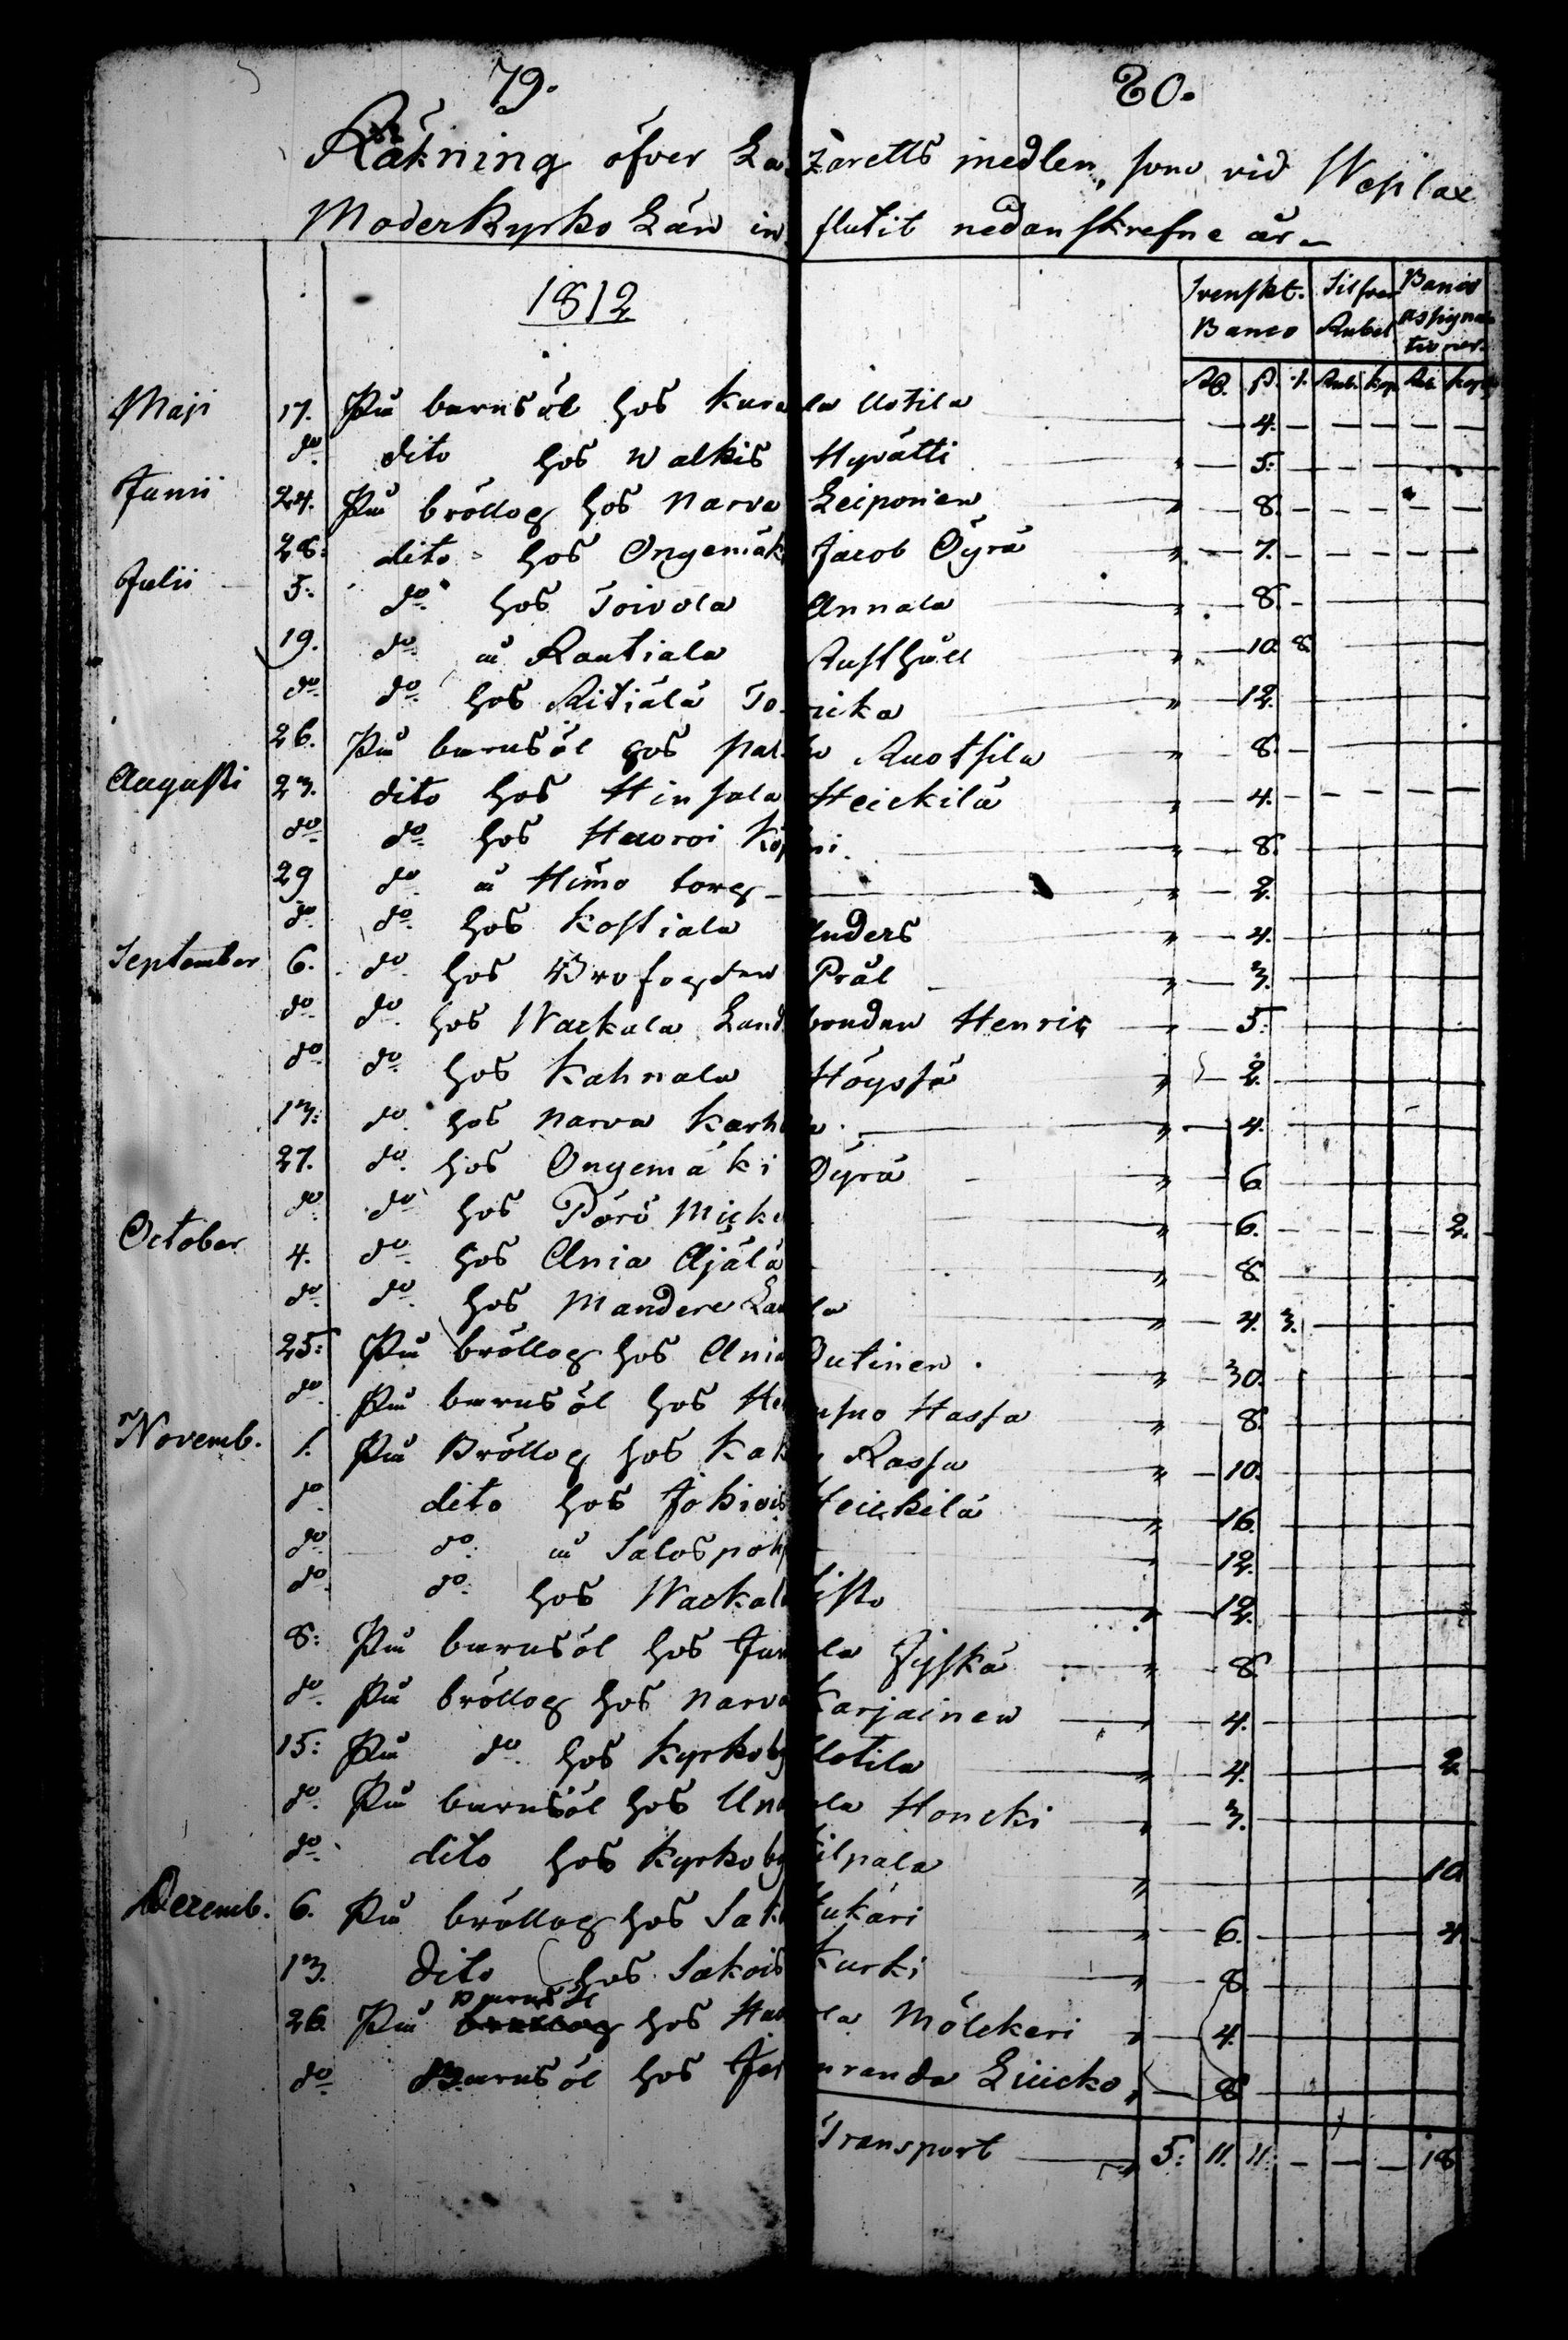 79. 80.
Räkning öfver Lazaretts medlen, som vid Wesilax
Moderkyrko Län influtit nedanskrefne år
1812
Svenskt. Silfver Banco
Banco Rubel assignationer
Rd. ß. r. Rub. kop. Rub. kop.
Maji 17. På barnsöl hos Kurala Uotila 4.
do dito hos Walkis Hyvätti " 5:
Junii 24. På bröllog hos Narva Leiponen " 8.
28: dito hos Ongemäk Jacob Öyrä " 7.
Julii 5: do hos Toivola Annala " 8.
19. do å Rautiala Rusthåll " 10. 8.
do do hos Ritiälä " 12.
26. På barnsöl hos Ruotsila " 8.
Augusti 23. dito hos Hinsala Heickilä " 4.
do do hos " 8.
29 do å Himo torg " 2.
do do hos Kostiala Anders " 4.
September 6. do hos Brofogden Präl " 3.
do do hos Wackala Landbonden Henric " 5:
do do hos Kahnala Höyssä " 2.
13: do hos Narva Karh " 4.
27. do hos Ongemäki Öyrä " 6
do do hos Pörö Micke " 6. 2.
October 4. do hos Ania Äjälä " 8
do do hos Mandere La la " 4. 3.
25: På bröllog hos Ania Outinen " 30.
do På barnsöl hos Hassa " 8.
Novemb. 1. På Bröllog hos Rassa " 10.
do dito hos Jokiois Heickilä " 16.
do do å Salospohj " 12.
do do hos Wackal " 12.
8: På barnsöl hos Jun la Jyskä " 8
do På bröllog hos Narva Karjainen " 4.
15: På do hos Kyrkoby Uotila " 4. 2.
do På barnsöl hos Una la Honcki " 3.
do dito hos Kyrkoby Kilpala " 10
Decemb. 6. På bröllog hos Sak Hukari " 6. 4
13. Dito hos Sakois Kurki " 8
26. På Barnsöl hos la Mölckeri " 4.
do Barnsöl hos randa Liucko " 8
Transport " 5: 11. 11. 18